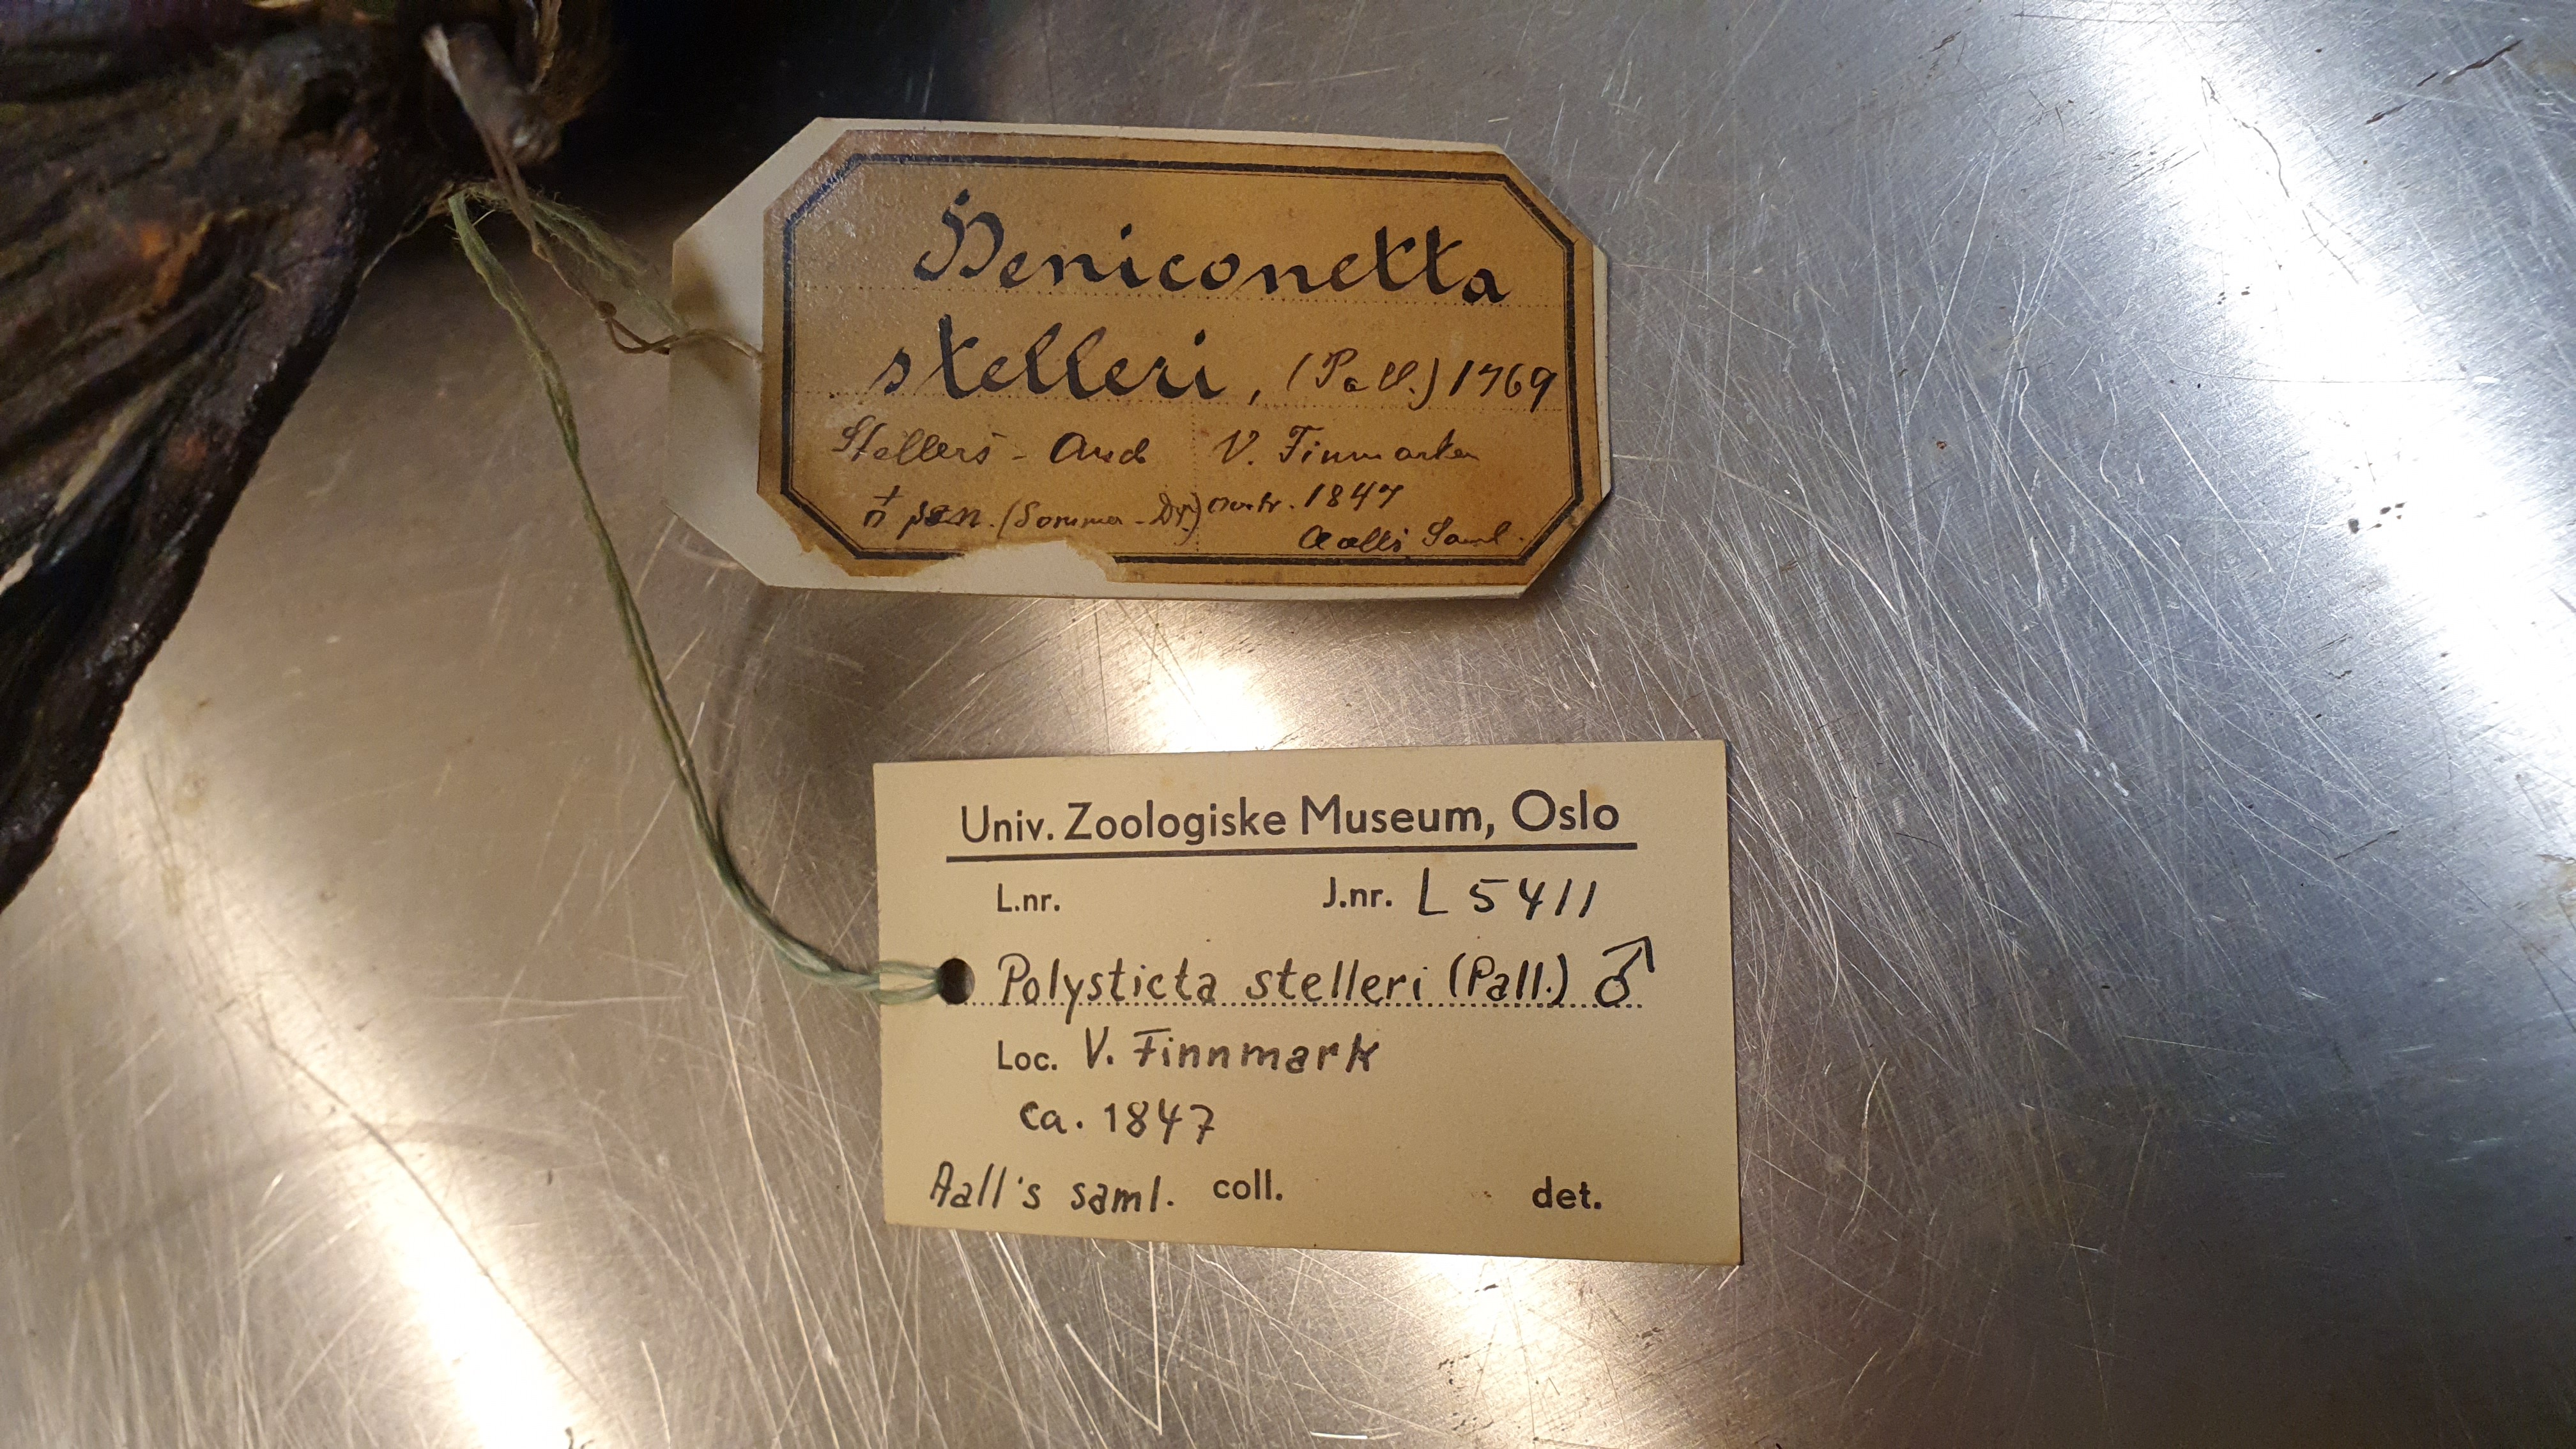 Heniconetta
stelleri, (Pall.) 1769
Stellers - And V. Finmarken
♂ sen. (Sommer - Dr.) 1847
Aalls Saml.
Univ. Zoologiske Museum, Oslo
L.nr. J.nr. L 5411
Polysticta stelleri (Pall.) ♂
Loc. V. Finnmark
ca. 1847
Aall's saml. coll. det.